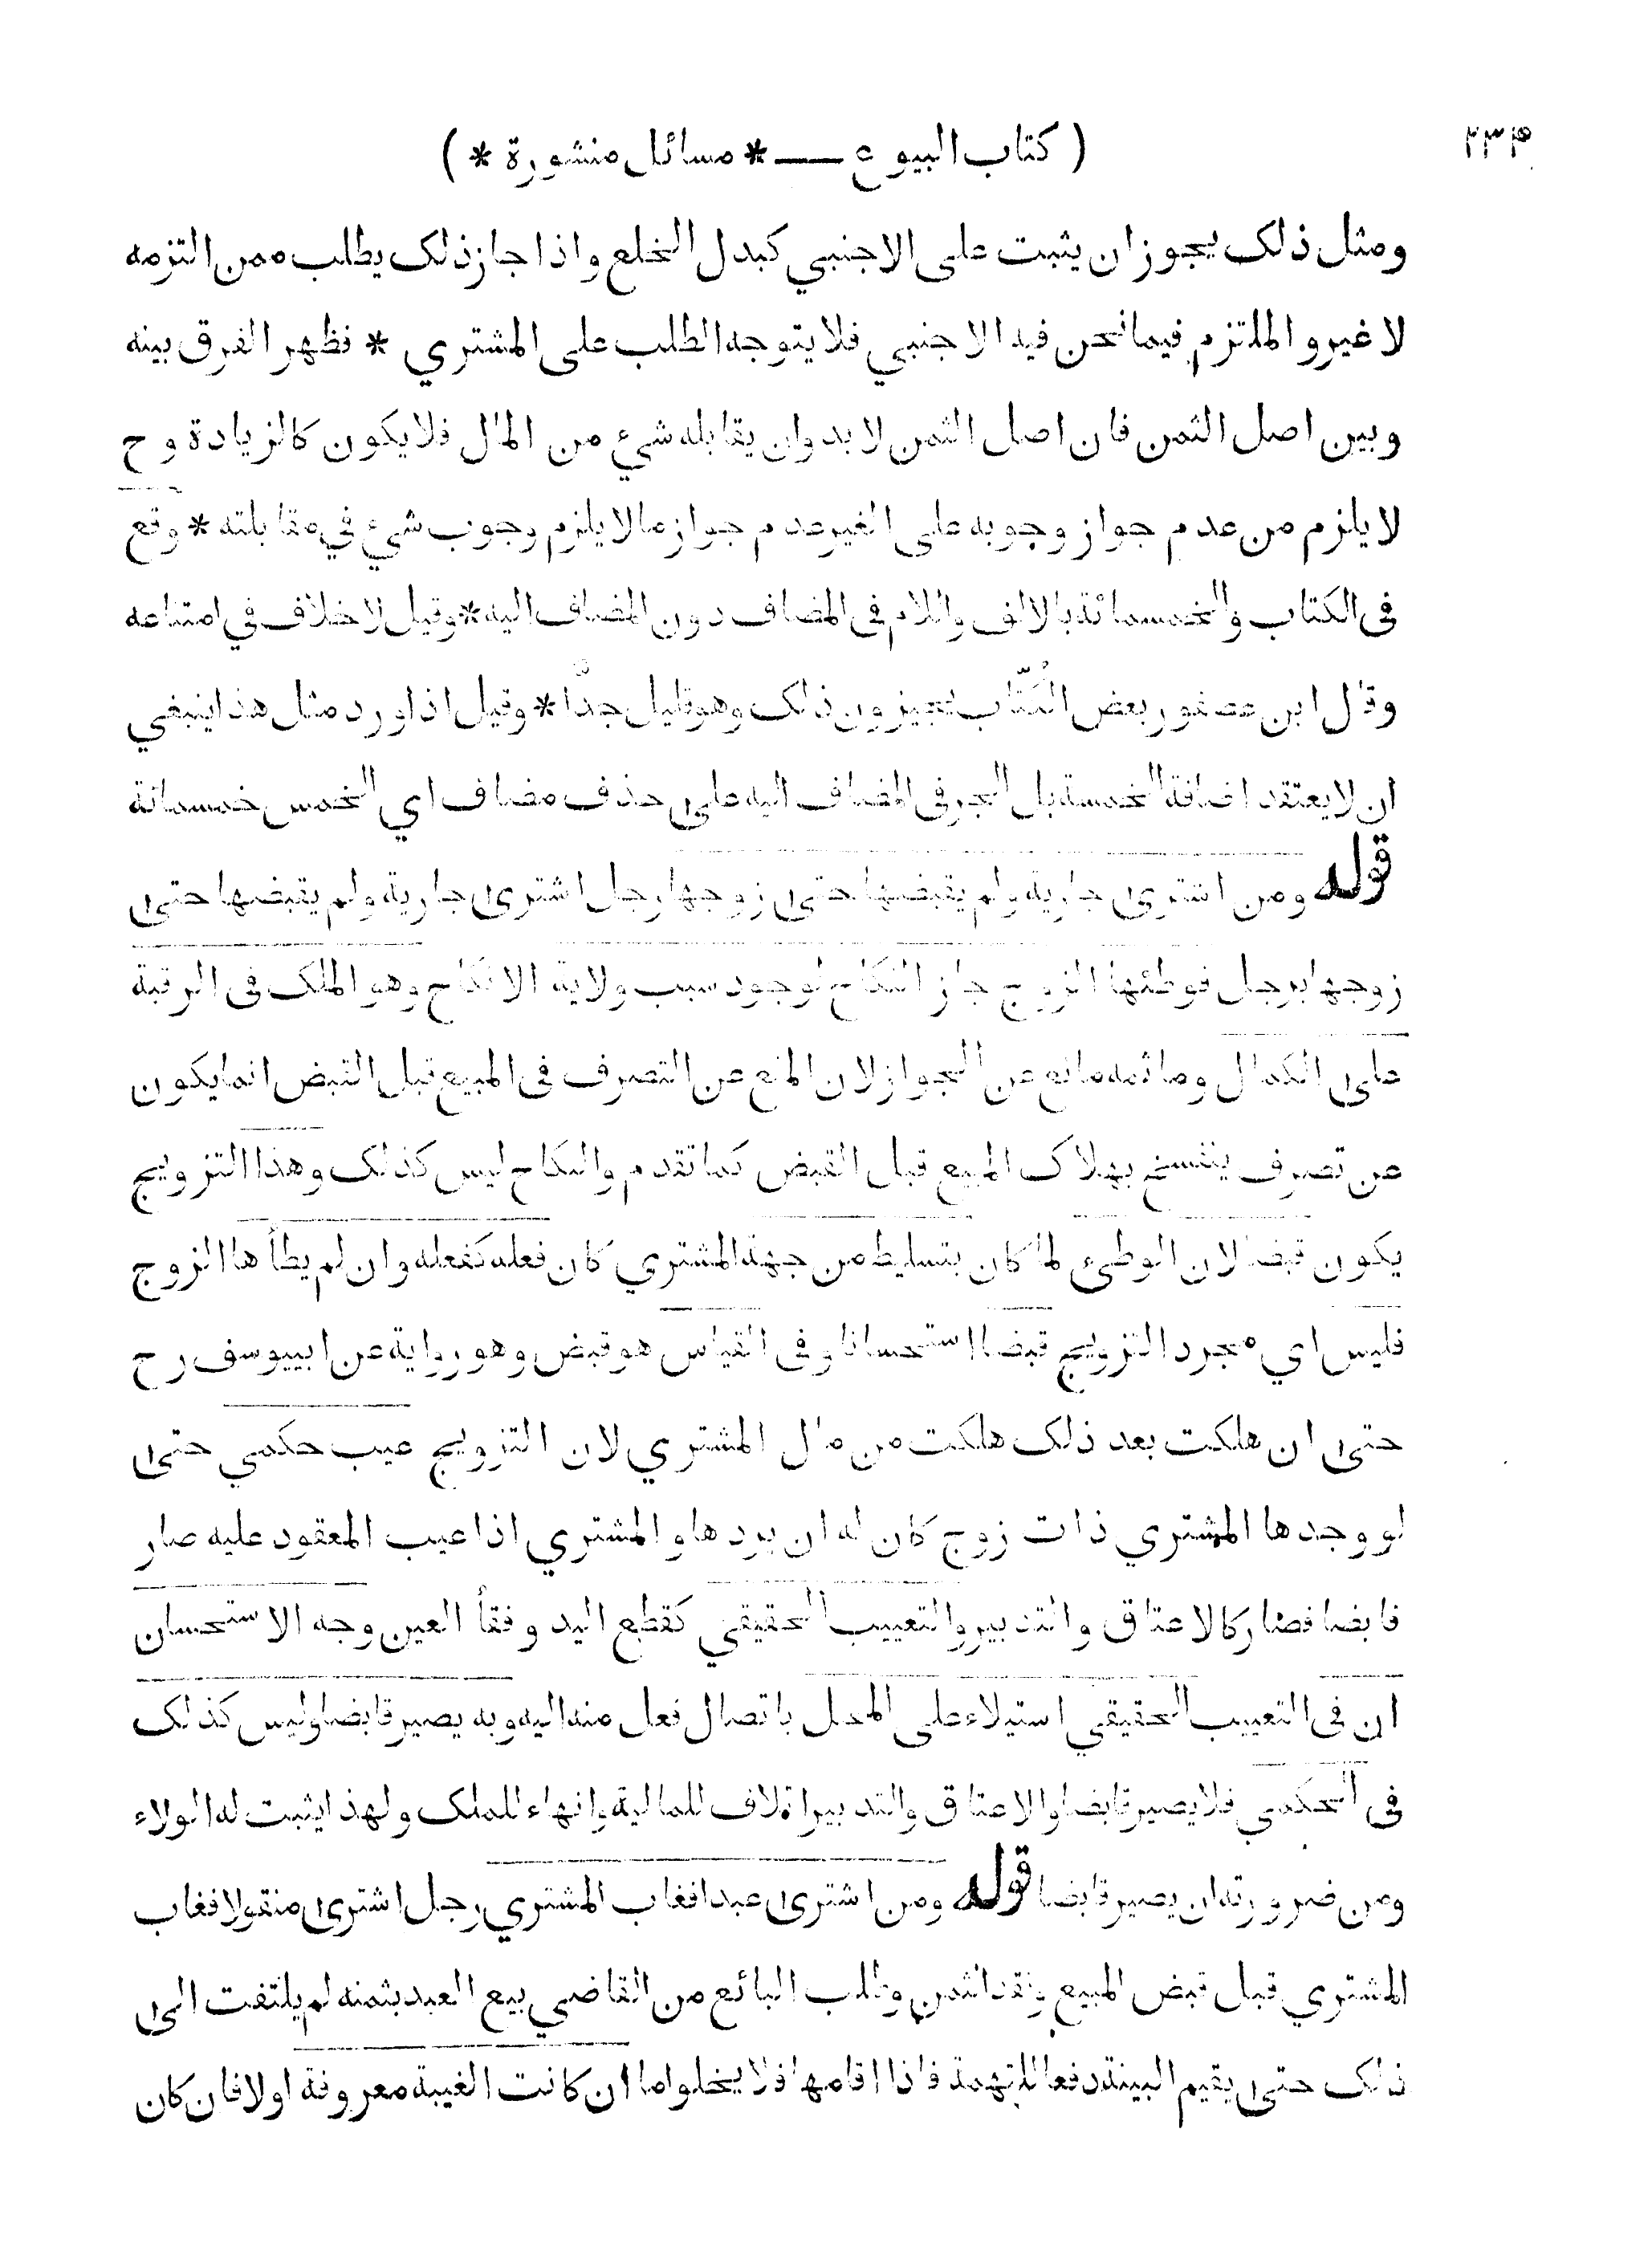 ٢٣٣
( كتاب البيوع — * مسائل منشورة * )
ومثل ذلك يجوز ان يثبت على الاجنبي كبدل الخلع واذا جاز ذلك يطلب ممن التزمه
لا غير والملتزم فيما نحن فيه الاجنبي فلا يتوجه الطلب على المشتري * فظهر الفرق بينه
وبين اصل الثمن فان اصل الثمن لا بد وان يقابله شيء من المال فلا يكون كالزيادة و ح
لا يلزم من عدم جواز وجوبه على الغير عدم جواز ما لا يلزم وجوب شيء في مقابلته * وقع
في الكتاب والخمسمائة بالالف واللام في المضاف دون المضاف اليه * وقيل لا خلاف في امتناعه
وقال ابن عصفور بعض الكُتّاب يجيزون ذلك وهو قليل جدّا * وقيل اذا ورد مثل هذا ينبغي
ان لا يعتقد اضافة الخمسة بل الجر في المضاف اليه على حذف مضاف اي الخمس خمسمائة
قوله ومن اشترى جارية ولم يقبضها حتى زوجها رجل اشترى جارية ولم يقبضها حتى
زوجها برجل فوطئها الزوج جاز النكاح لوجود سبب ولاية الانكاح وهو الملك في الرقبة
على الكمال وما ثمه مانع عن الجواز لان المنع عن التصرف في المبيع قبل القبض انما يكون
عن تصرف ينفسخ بهلاك المبيع قبل القبض كما تقدم والنكاح ليس كذلك وهذا التزويج
يكون قبضا لان الوطيء لما كان بتسليط من جهة المشتري كان فعله كفعله وان لم يطأها الزوج
فليس اي مجرد التزويج قبضا استحسانا وفي القياس هو قبض وهو رواية عن ابييوسف رح
حتى ان هلكت بعد ذلك هلكت من مال المشتري لان التزويج عيب حكمي حتى
لو وجدها المشتري ذات زوج كان له ان يردها والمشتري اذا عيب المعقود عليه صار
قابضا فصار كالاعتاق والتدبير والتعييب الحقيقي كقطع اليد وفقأ العين وجه الاستحسان
ان في التعييب الحقيقي استيلاء على المحل باتصال فعل منه اليه وبه يصير قابضا وليس كذلك
في الحكمي فلا يصير قابضا والاعتاق والتدبير اتلاف للمالية وانهاء للملك ولهذا يثبت له الولاء
ومن ضرورته ان يصير قابضا قوله ومن اشترى عبدا فغاب المشتري رجل اشترى منقولا فغاب
المشتري قبل قبض المبيع ونقد الثمن وطلب البائع من القاضي بيع العبد بثمنه لم يلتفت الى
ذلك حتى يقيم البينة دفعا للتهمة فاذا اقامها فلا يخلو اما ان كانت الغيبة معروفة اولا فان كان